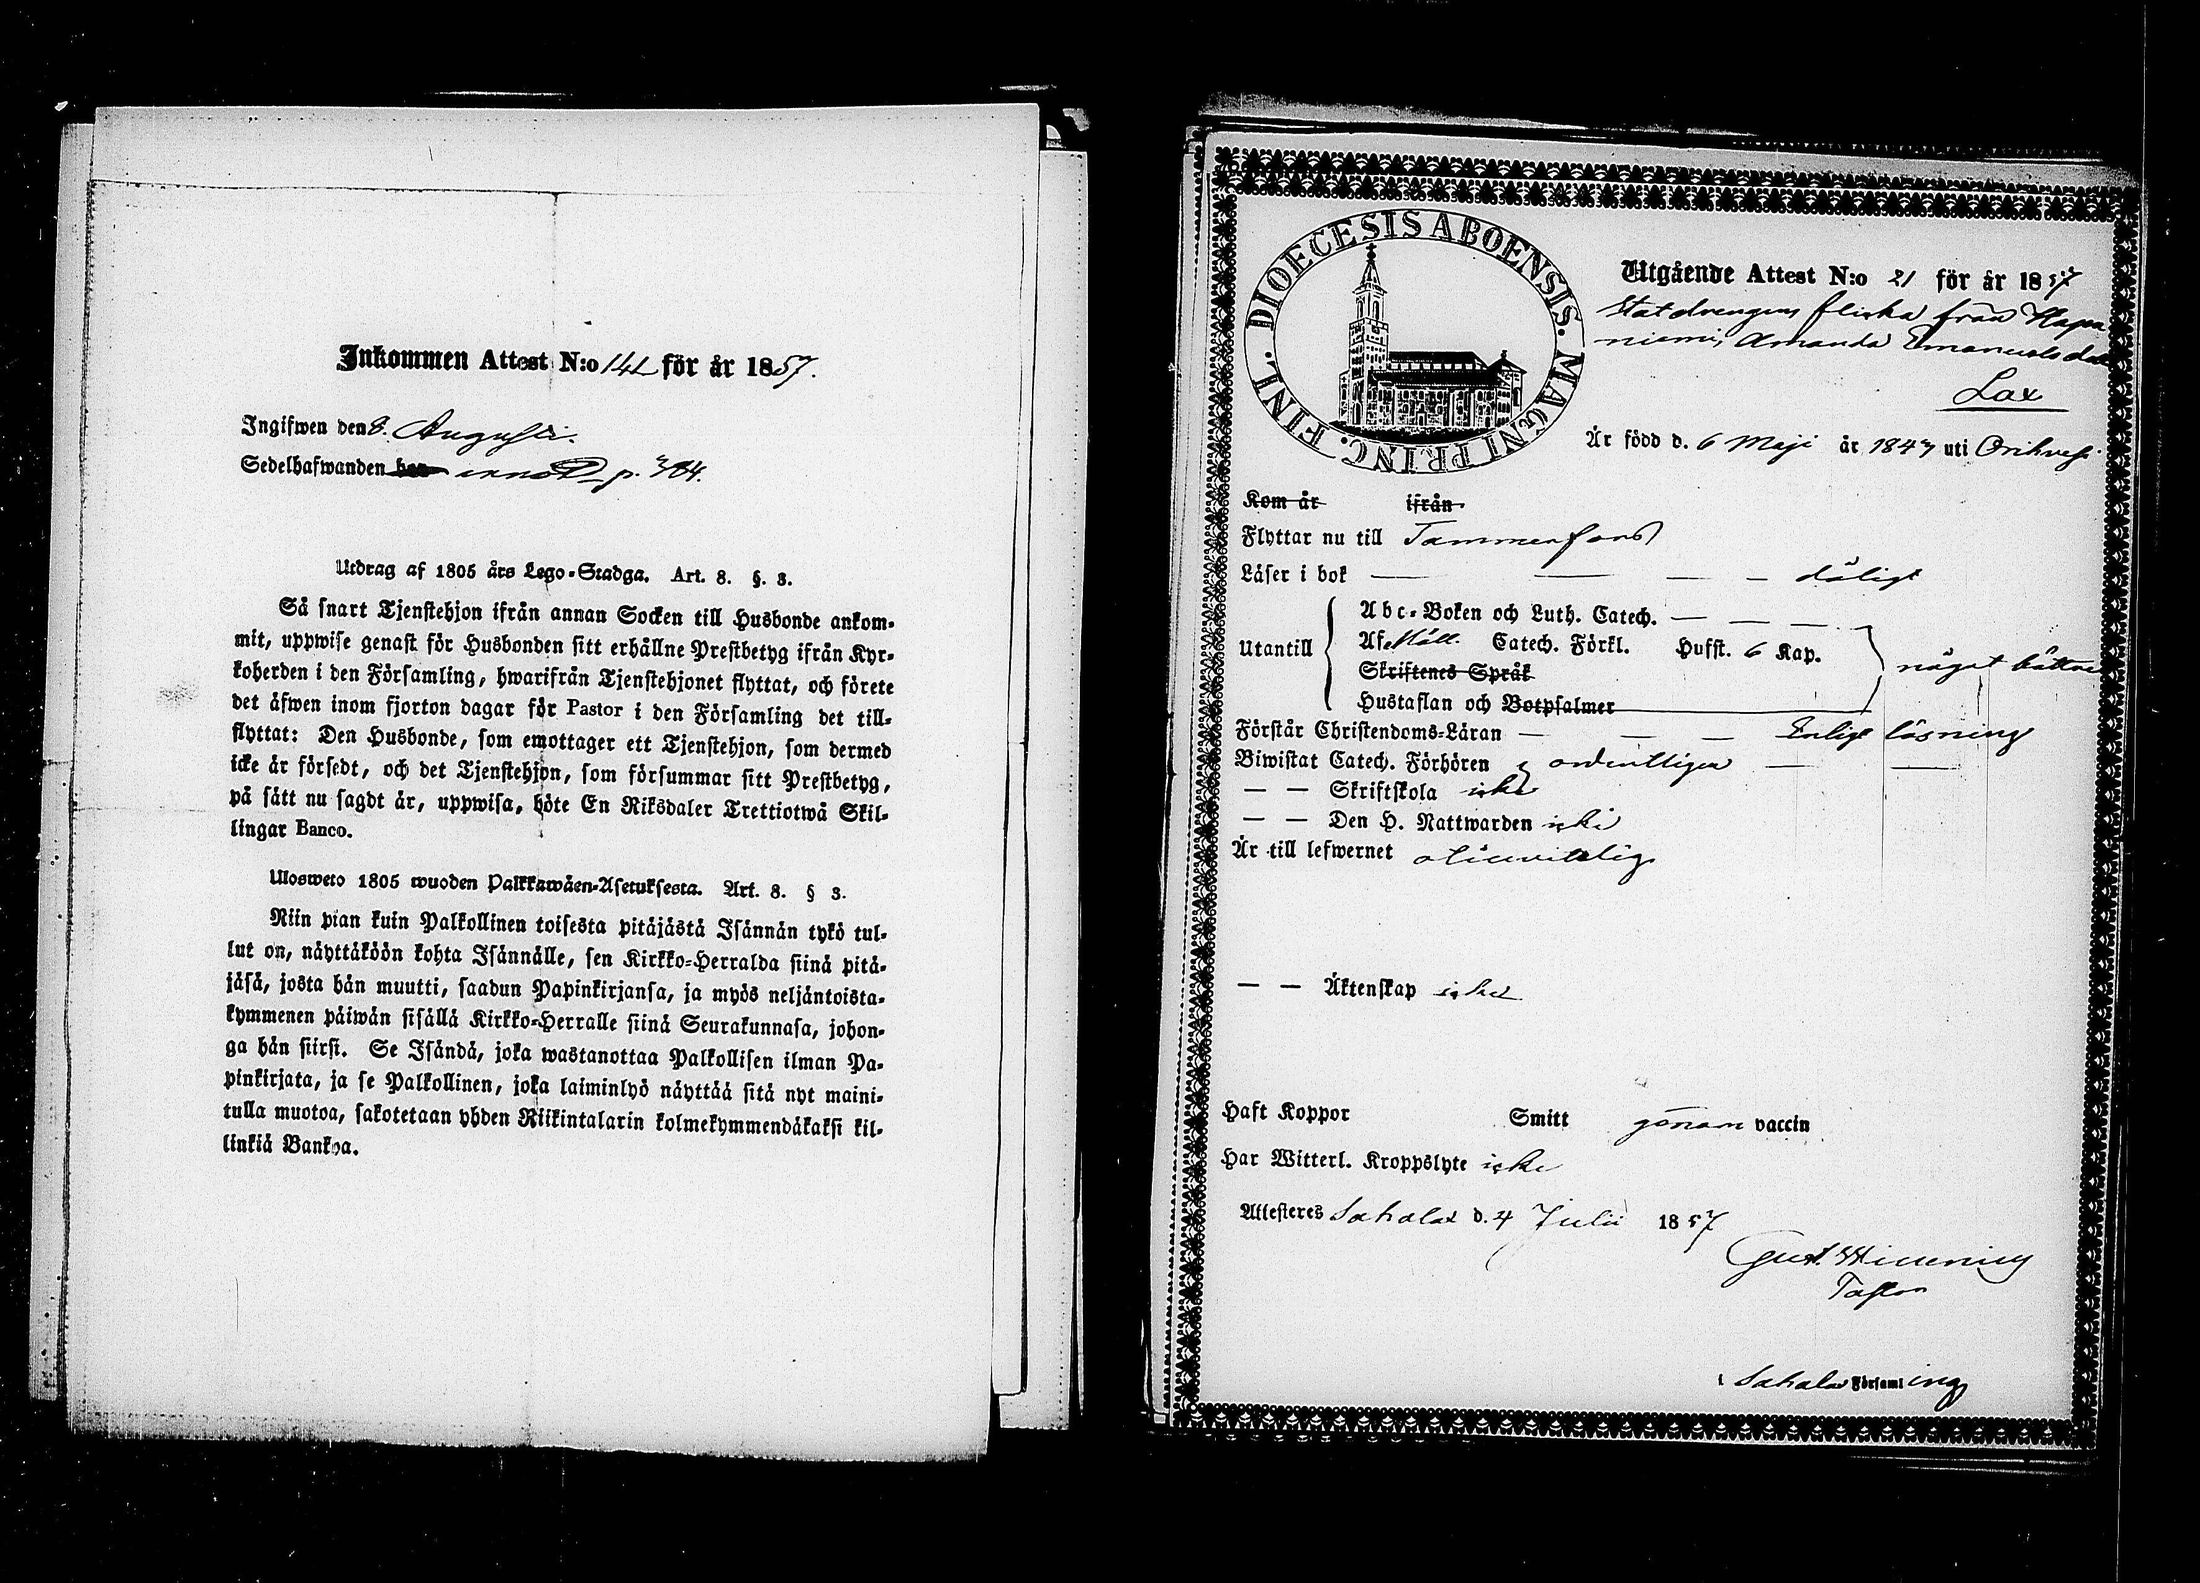 Inkommen Attest N:o 142 för år 1857.
Ingifwen den 8. Augusti.
Sedelhafwanden har p. 384.
Utdrag af 1805 års Lego-Stadga. Art. 8. §. 3.
Så snart Tjenstehjon ifrån annan Socken till Husbonde ankom-
mit, uppwise genast för Husbonden sitt erhållne Prestbetyg ifrån Kyr-
koherden i den Församling, hwarifrån Tjenstehjonet flyttat, och förete
det äfwen inom fjorton dagar för Pastor i den Församling det till-
flyttat: Den Husbonde, som emottager ett Tjenstehjon, som dermed
icke är försedt, och det Tjenstehjon, som försummar sitt Prestbetyg,
på sätt nu sagdt är, uppwisa, böte En Riksdaler Trettiotwå Skil-
lingar Banco.
Ulosweto 1805 wuoden Palkkawäen-Asetuksesta. Art. 8. § 3.
Niin pian kuin Palkollinen toisesta pitäjästä Isännän tykö tul-
lut on, näyttäköön kohta Isännälle, sen Kirkko-Herralda siinä pitä-
jäsä, josta hän muutti, saadun Papinkirjansa, ja myös neljäntoista-
kymmenen päiwän sisällä Kirkko-Herralle siinä Seurakunnasa, johon-
ga hän siirsi. Se Isändä, joka wastanottaa Palkollisen ilman Pa-
pinkirjata, ja se Palkollinen, joka laiminlyö näyttää sitä nyt maini-
tulla muotoa, sakotetaan yhden Riikintalarin kolmekymmendäkaksi kil-
linkiä Bankoa.
DIOECESIS ABOENSIS. MAGNI PRINC. FINL.
Utgående Attest N:o 21 för år 1857
Statdrengens flicka från Hapa
niemi, Amanda Emanuelsdr
Lax
Är född d. 6 Maji år 1847 uti Orihvesi
Kom år ifrån
Flyttar nu till Tammerfors
Läser i bok — — — — dåligt
Abc-Boken och Luth. Catech. — — —
Utantill Af Möll. Catech. Förkl. Hufst. 6 Kap. något bättre
Skriftenes Språk
Hustaflan och Botpsalmer
Förstår Christendoms-Läran — — — Enligt läsning
Biwistat Catech. Förhören ordentligen — —
— — Skriftskola icke
— — Den H. Nattwarden icke
Är till lefwernet oförvitelig
— — Äktenskap icke
Haft Koppor Smitt genom vaccin
Har Witterl. Kroppslyte icke
Attesteres Sahalax d. 4 Julii 1857
Gust. Winning
Pastor
i Sahalax Församling